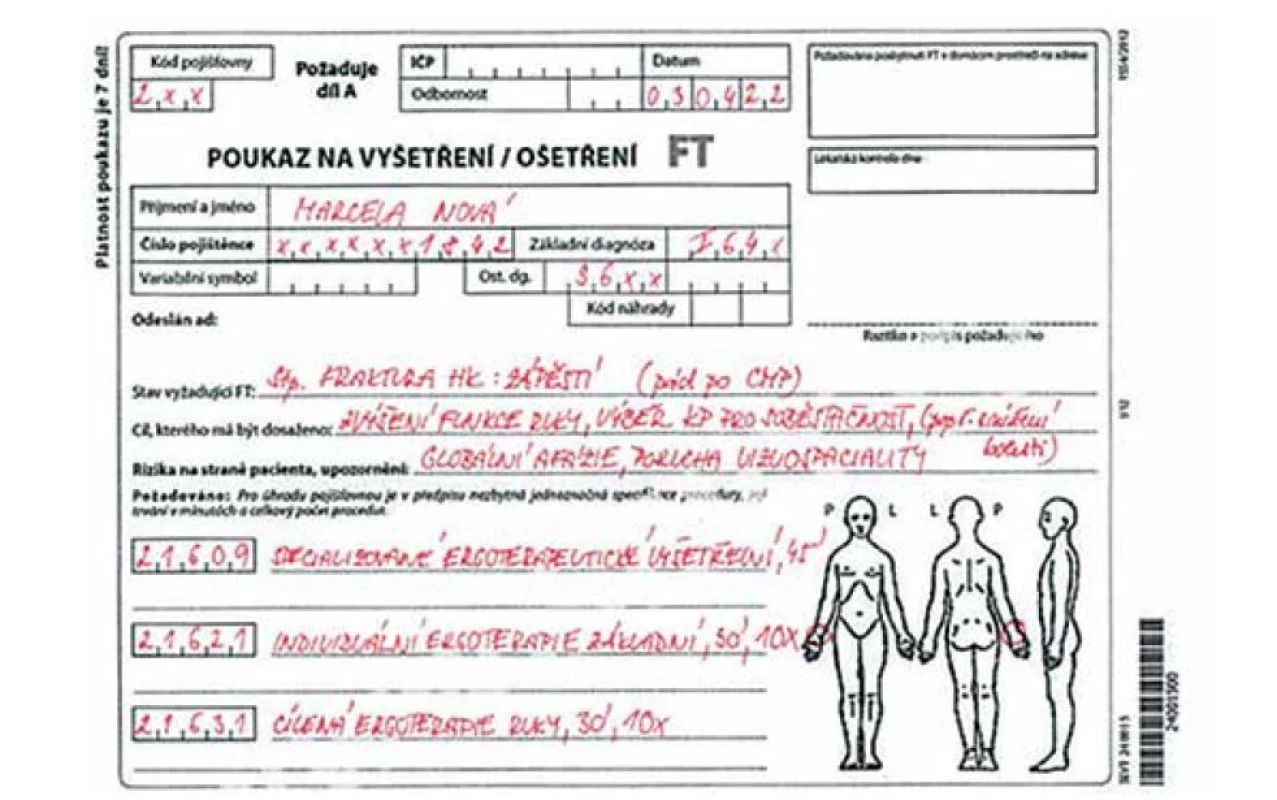 Kód pojišťovny
Požaduje díl A
IČP
Datum
2xx
Odbornost
030422
Požadováno poskytnutí FT v domácím prostředí na adrese:
POUKAZ NA VYŠETŘENÍ / OŠETŘENÍ FT
Lékařská kontrola dne
Příjmení a jméno MARCELA NOVÁ
Číslo pojištěnce xxxxxx1842 Základní diagnóza I64x
Variabilní symbol Ost. dg. S6xx
Kód náhrady
Odeslán ad:
Razítko a podpis požadujícího
Stav vyžadující FT: Stp. FRAKTURA HK: ZÁPĚSTÍ (pád po CMP)
Cíl, kterého má být dosaženo: ZVÝŠENÍ FUNKCE RUKY, VÝBĚR KP PRO SOBĚSTAČNOST, (popř. snížení
bolesti)
Rizika na straně pacienta, upozornění: GLOBÁLNÍ AFÁZIE, PORUCHA VIZUOSPACIALITY
Požadováno: Pro úhradu pojišťovnou je v předpisu nezbytná jednoznačná specifikace procedury, její
trvání v minutách a celkový počet procedur.
P L L P
21609 SPECIALIZOVANÉ ERGOTERAPEUTICKÉ VYŠETŘENÍ, 45'
21621 INDIVIDUÁLNÍ ERGOTERAPIE ZÁKLADNÍ, 30', 10X
21631 CÍLENÁ ERGOTERAPIE RUKY, 30', 10x
Platnost poukazu je 7 dní!
1/12